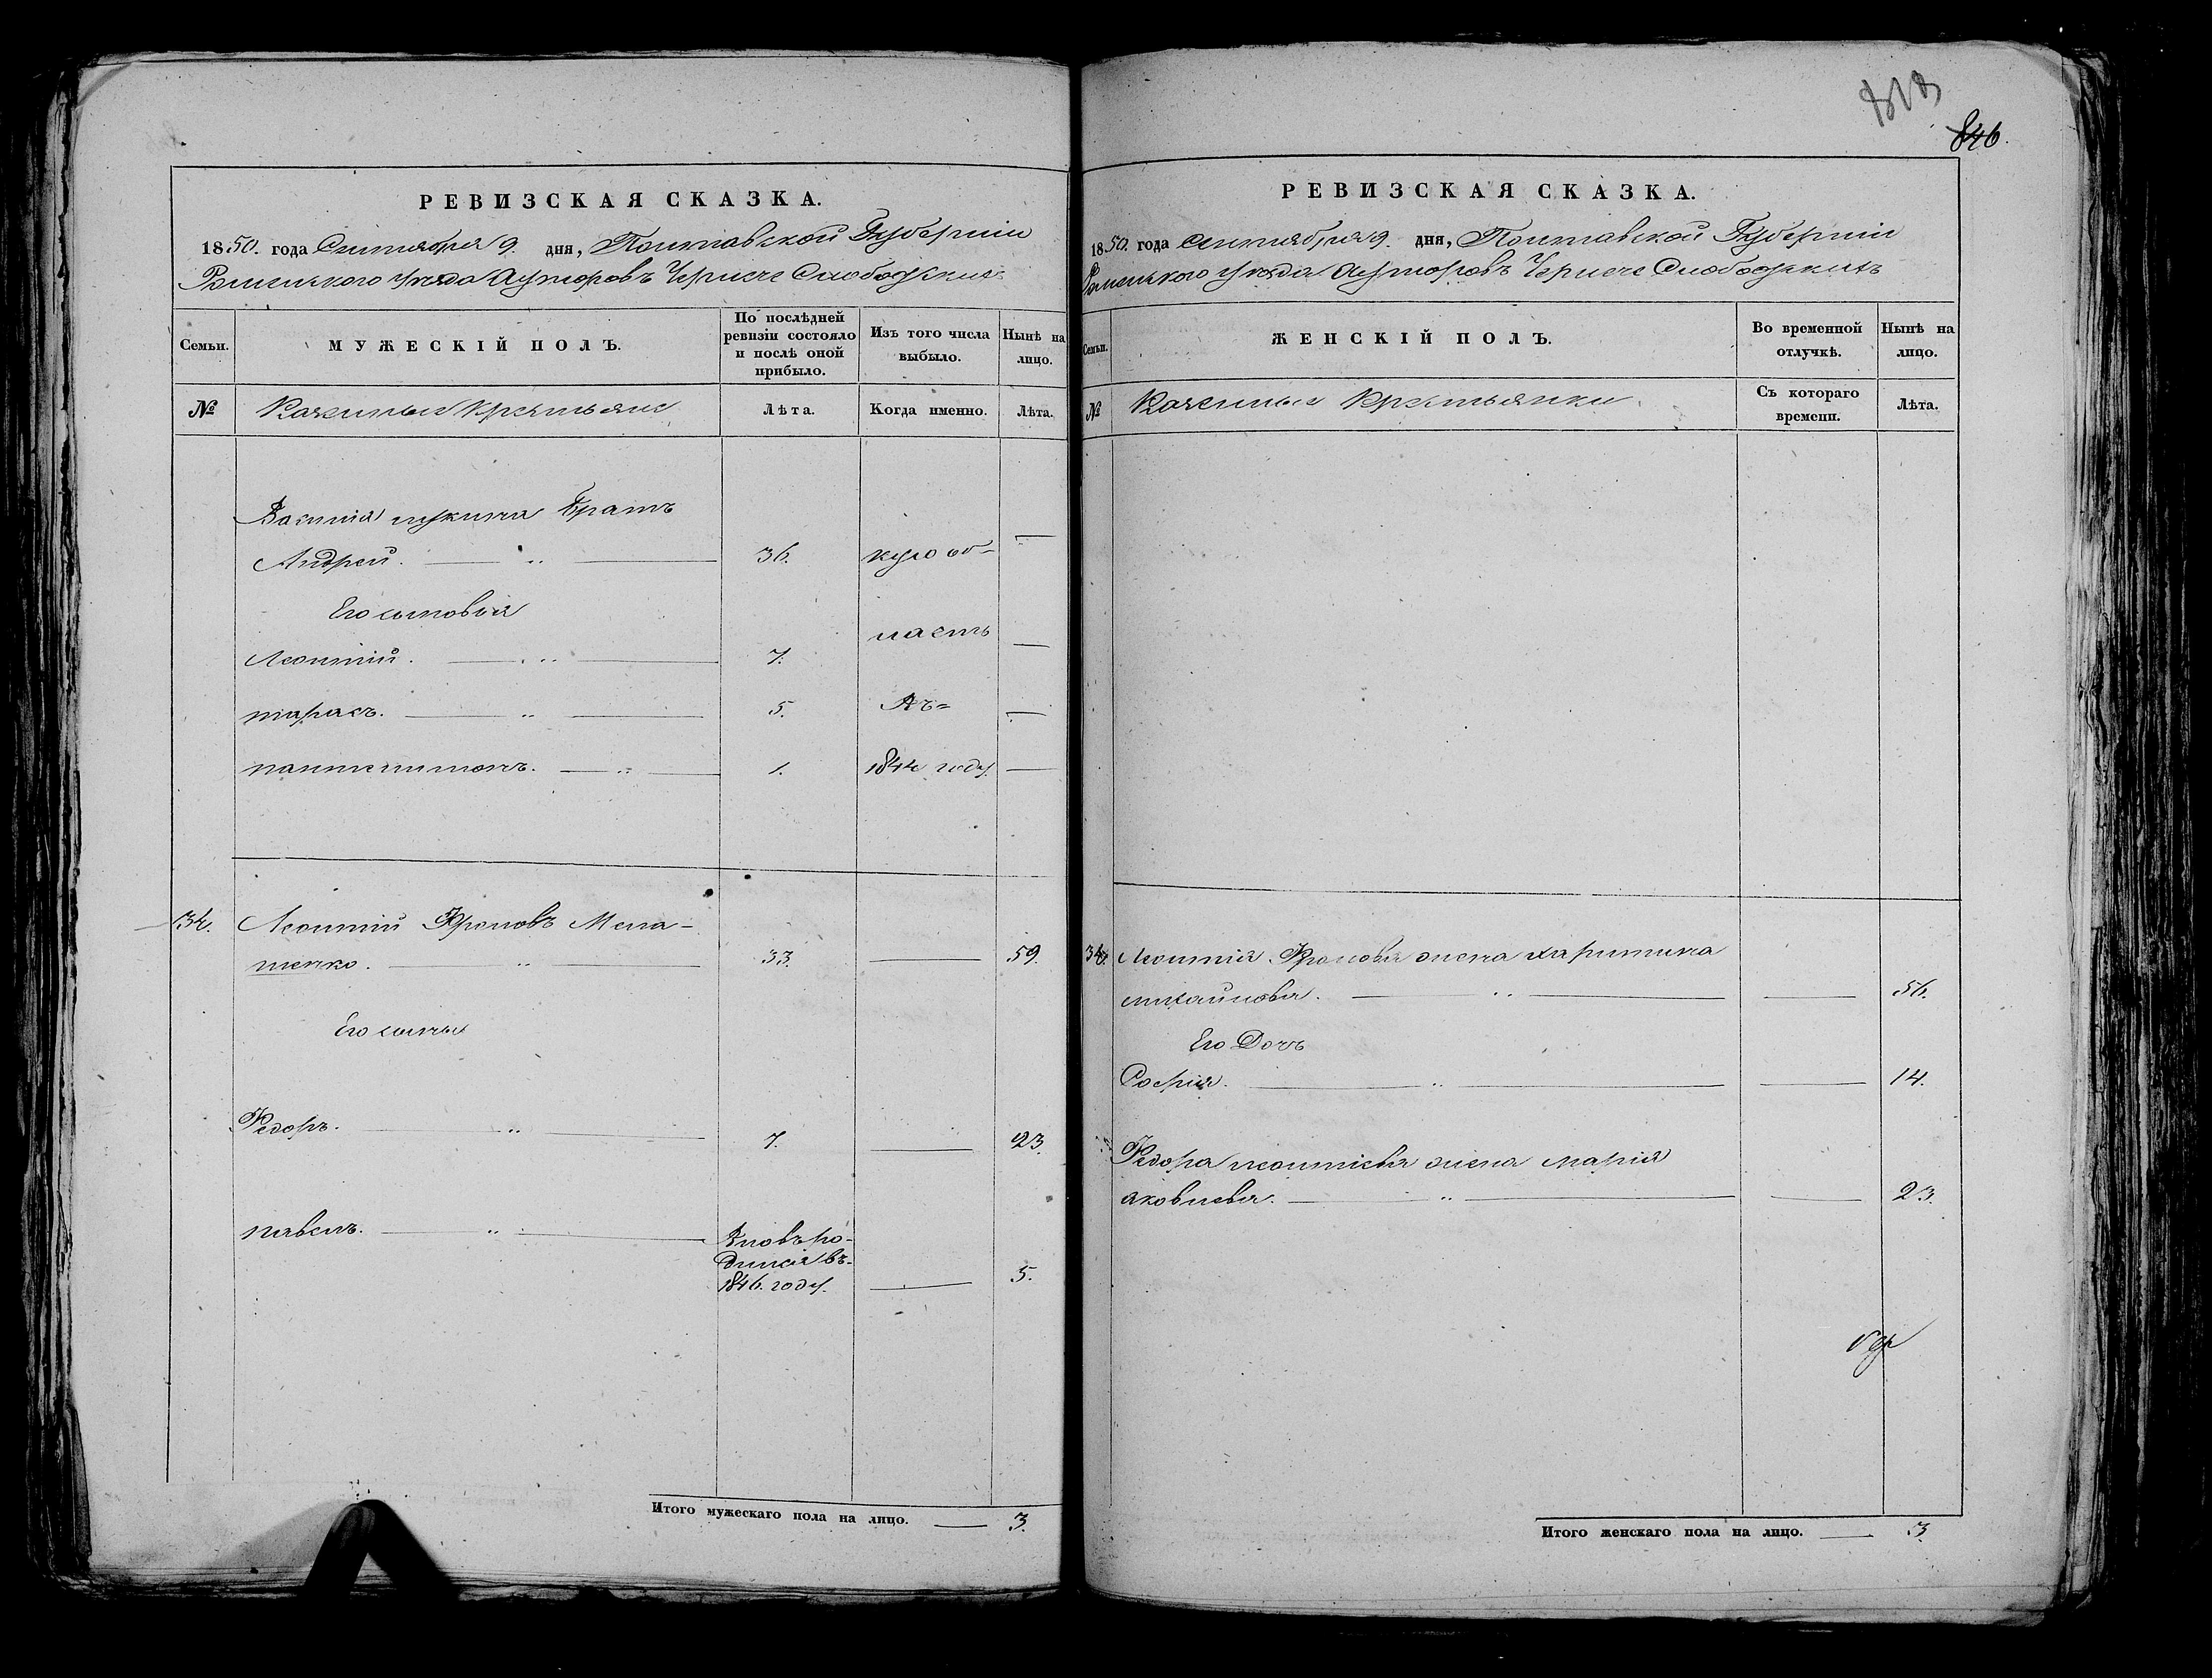 РЕВИЗСКАЯ СКАЗКА.
1850. года Сентября 9. дня, Полтавской Губерніи
Роменского уезда Хуторовъ Чернече Слободскихъ
Семьи.
МУЖЕСКІЙ ПОЛЪ.
По послѣдней ревизіи состояло и послѣ оной прибыло.
Изъ того числа выбыло.
Нынѣ на лицо.
№
Казенные крестьяне
Лѣта.
Когда именно.
Лѣта.
Василія брат
Андрей. 36.
Его сыновья
Леонтій. 7.
ласть
тарасъ. 5.
пантелимонъ. 1. 1844 году.
34. Леонтій Фроловъ
33. 59.
Его сыны
Федоръ. 7. 23.
павелъ. Вновь ро-
дился въ-
1846. году. 5.
Итого мужескаго пола на лицо. 3.
813
846.
РЕВИЗСКАЯ СКАЗКА.
1850. года сентября 9. дня, Полтавской Губерніи
Роменского уезда Хуторовъ Чернече Слободскихъ
Семьи.
ЖЕНСКІЙ ПОЛЪ.
Во временной отлучкѣ.
Нынѣ на лицо.
№
Казенные Крестьянки.
Съ котораго времени.
Лѣта.
34. Леонтія Фролова жена харитина
михайлова. 56.
Его Дочь
Софія. 14.
Федора леонтіева жена марія
яковлева. 23.
Итого женскаго пола на лицо. 3